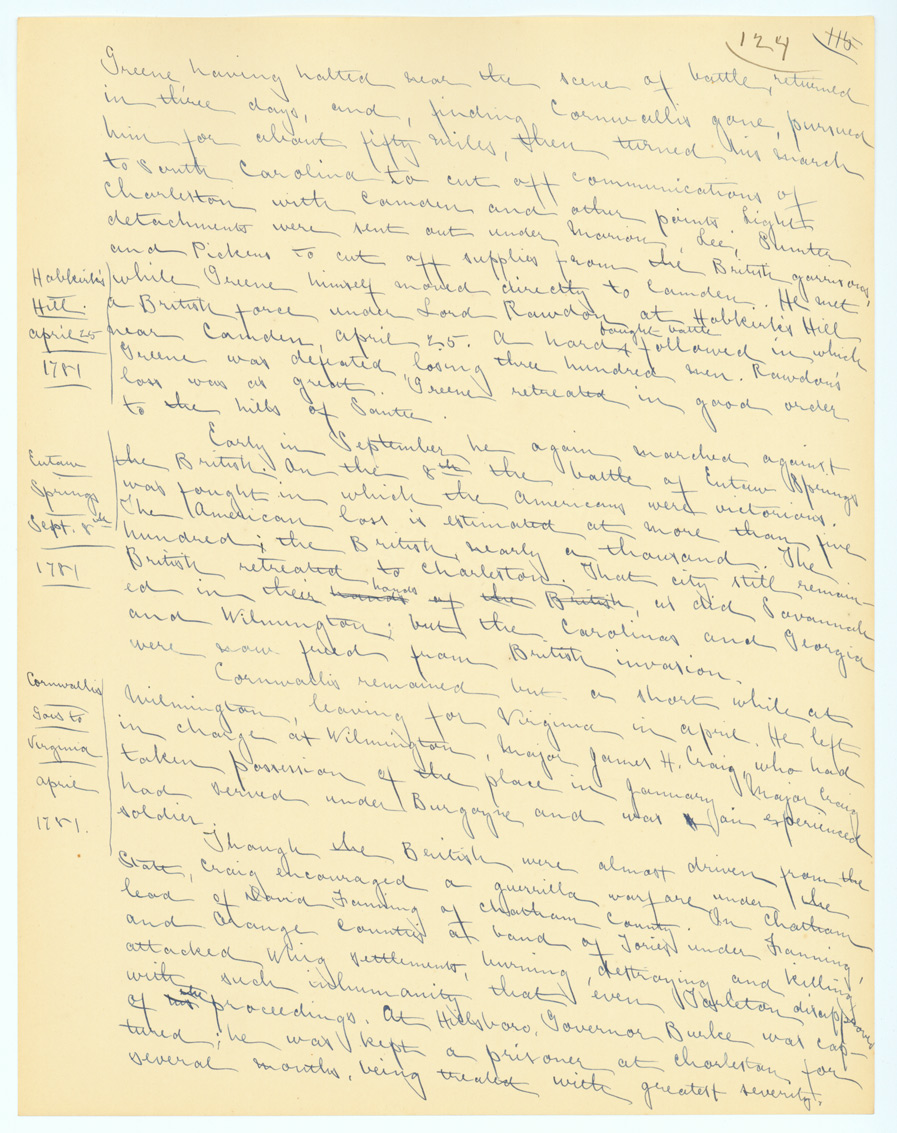 124 115
Greene having halted near the scene of battle, returned
in three days, and, finding Cornwallis gone, pursued
him for about fifty miles, then turned his march
to South Carolina to cut off communications of
Charleston with Camden and other points. Light
detachments were sent out under Marion, Lee, Sumter
and Pickens to cut off supplies from the British garrisons,
Habkirk's
Hill.
April 25
1781
while Greene himself moved directly to Camden. He met
a British force under Lord Rawdon at Hobkirk's Hill
near Camden, April 25. A hard fought battle followed in which
Greene was defeated, losing three hundred men. Rawdon's
loss was as great. Greene retreated in good order
to the hills of Santee.
Early in September he again marched against
Eutaw
Springs
Sept. 8th
1781
the British. On the 8th the battle of Eutaw Springs
was fought in which the Americans were victorious.
The American loss is estimated at more than five
hundred; the British, nearly a thousand. The
British retreated to Charleston. That city still remain-
ed in their hands hands of the British, as did Savannah
and Wilmington; but the Carolinas and Georgia
were now freed from British invasion.
Cornwallis
Goes to
Virginia
April
1781.
Cornwallis remained but a short while at
Wilmington, leaving for Virginia in April. He left
in charge at Wilmington, Major James H. Craig, who had
taken possession of the place in January. Major Craig
had served under Burgoyne and was an experienced
soldier.
Though the British were almost driven from the
State, Craig encouraged a guerrilla warfare under the
lead of David Fanning of Chatham County. In Chatham
and Orange Counties a band of Tories under Fanning,
attacked Whig settlements, burning, destroying and killing
with such inhumanity that even Tarleton disapproves
of his the proceedings. At Hillsboro, Governor Burke was cap-
tured; he was kept a prisoner at Charleston for
several months, being treated with greatest severity.